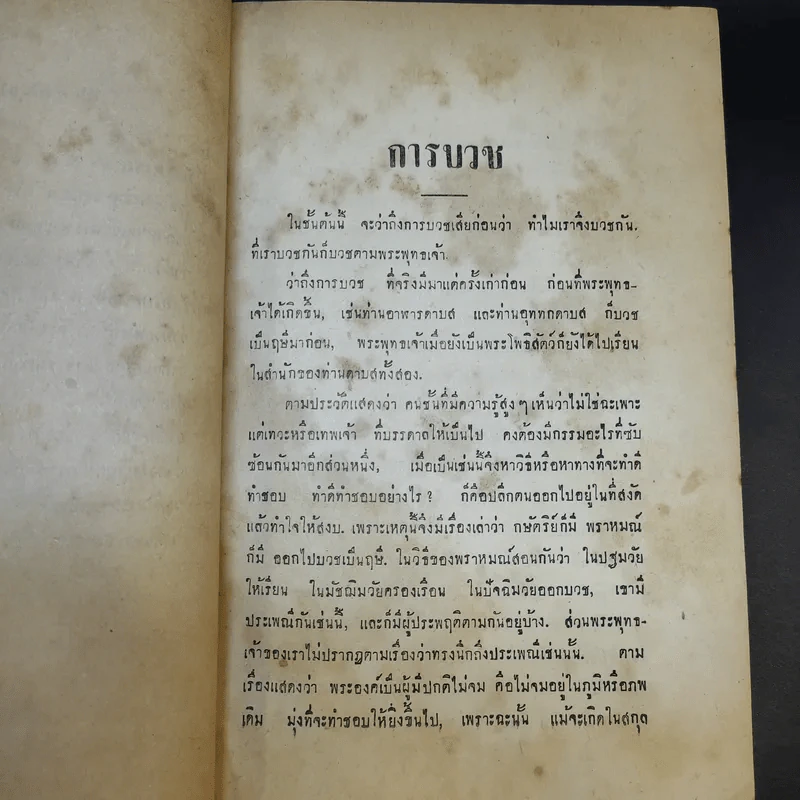 การบวช
ในชั้นต้นนี้ จะว่าถึงการบวชเสียก่อนว่า ทำไมเราจึงบวชกัน.
ที่เราบวชกันก็บวชตามพระพุทธเจ้า.
ว่าถึงการบวช ที่จริงมีมาแต่ครั้งเก่าก่อน ก่อนที่พระพุทธ-
เจ้าได้เกิดขึ้น, เช่นท่านอาฬารดาบส และท่านอุททกดาบส ก็บวช
เป็นฤษีมาก่อน, พระพุทธเจ้าเมื่อยังเป็นพระโพธิสัตว์ก็ยังได้ไปเรียน
ในสำนักของท่านดาบสทั้งสอง.
ตามประวัติแสดงว่า คนชั้นที่มีความรู้สูง ๆ เห็นว่าไม่ใช่ฉะเพาะ
แต่เทวะหรือเทพเจ้า ที่บรรดาลให้เป็นไป คงต้องมีกรรมอะไรที่ซับ
ซ้อนกันมาอีกส่วนหนึ่ง, เมื่อเป็นเช่นนี้จึงหาวิธีหรือหาทางที่จะทำดี
ทำชอบ ทำดีทำชอบอย่างไร ? ก็คือปลีกตนออกไปอยู่ในที่สงัด
แล้วทำใจให้สงบ. เพราะเหตุนี้จึงมีเรื่องเล่าว่า กษัตริย์ก็มี พราหมณ์
ก็มี ออกไปบวชเป็นฤษี. ในวิธีของพราหมณ์สอนกันว่า ในปฐมวัย
ให้เรียน ในมัชฌิมวัยครองเรือน ในปัจฉิมวัยออกบวช, เขามี
ประเพณีกันเช่นนี้, และก็มีผู้ประพฤติตามกันอยู่บ้าง. ส่วนพระพุทธ-
เจ้าของเราไม่ปรากฏตามเรื่องว่าทรงนึกถึงประเพณีเช่นนั้น. ตาม
เรื่องแสดงว่า พระองค์เป็นผู้มีปกติไม่จม คือไม่จมอยู่ในภูมิหรือภพ
เดิม มุ่งที่จะทำชอบให้ยิ่งขึ้นไป, เพราะฉะนั้น แม้จะเกิดในสกุล